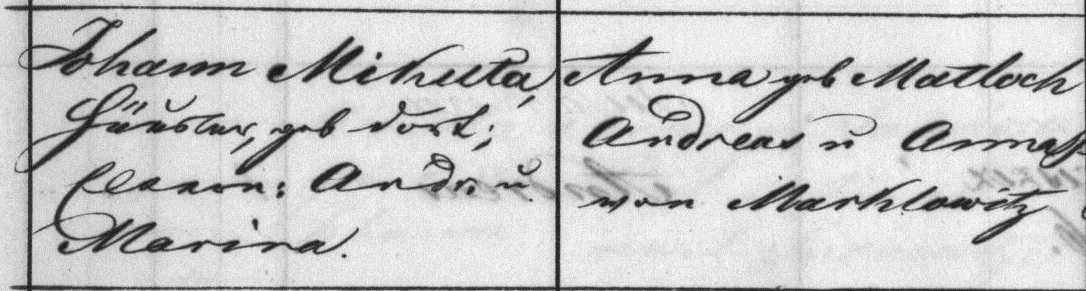 Johann Mikulta,
Häusler, geb dort;
Eltern: Andr. u
Marina.
Anna geb Matloch
Andreas u Anna
von Marklowitz